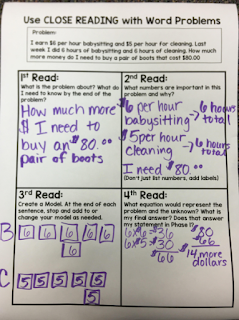 Use CLOSE READING with Word Problems
Problem:
I earn $6 per hour babysitting and $5 per hour for cleaning. Last
week I did 6 hours of babysitting and 6 hours of cleaning. How much
more money do I need to buy a pair of boots that cost $80.00
1st Read:
What is the problem about? What do
I need to know by the end of the
problem?
How much more
$ I need to
buy an $80.00
pair of boots
2nd Read:
What numbers are important in this
problem and why?
$6 per hour
babysitting → 6 hours
total
$5 per hour
cleaning → 6 hours
total
I need $80.00
(Don't just list numbers, add labels)
3rd Read:
Create a Model. At the end of each
sentence, stop and add to or
change your model as needed.
B 6 6 6 6 6
6
C 5 5 5 5 5
5
4th Read:
What equation would represent the
problem and the unknown? What is
my final answer? Does that answer
my statement in Phase 1?
6x6=36
6x5=$30
$66
$80
-66
$14 more
dollars